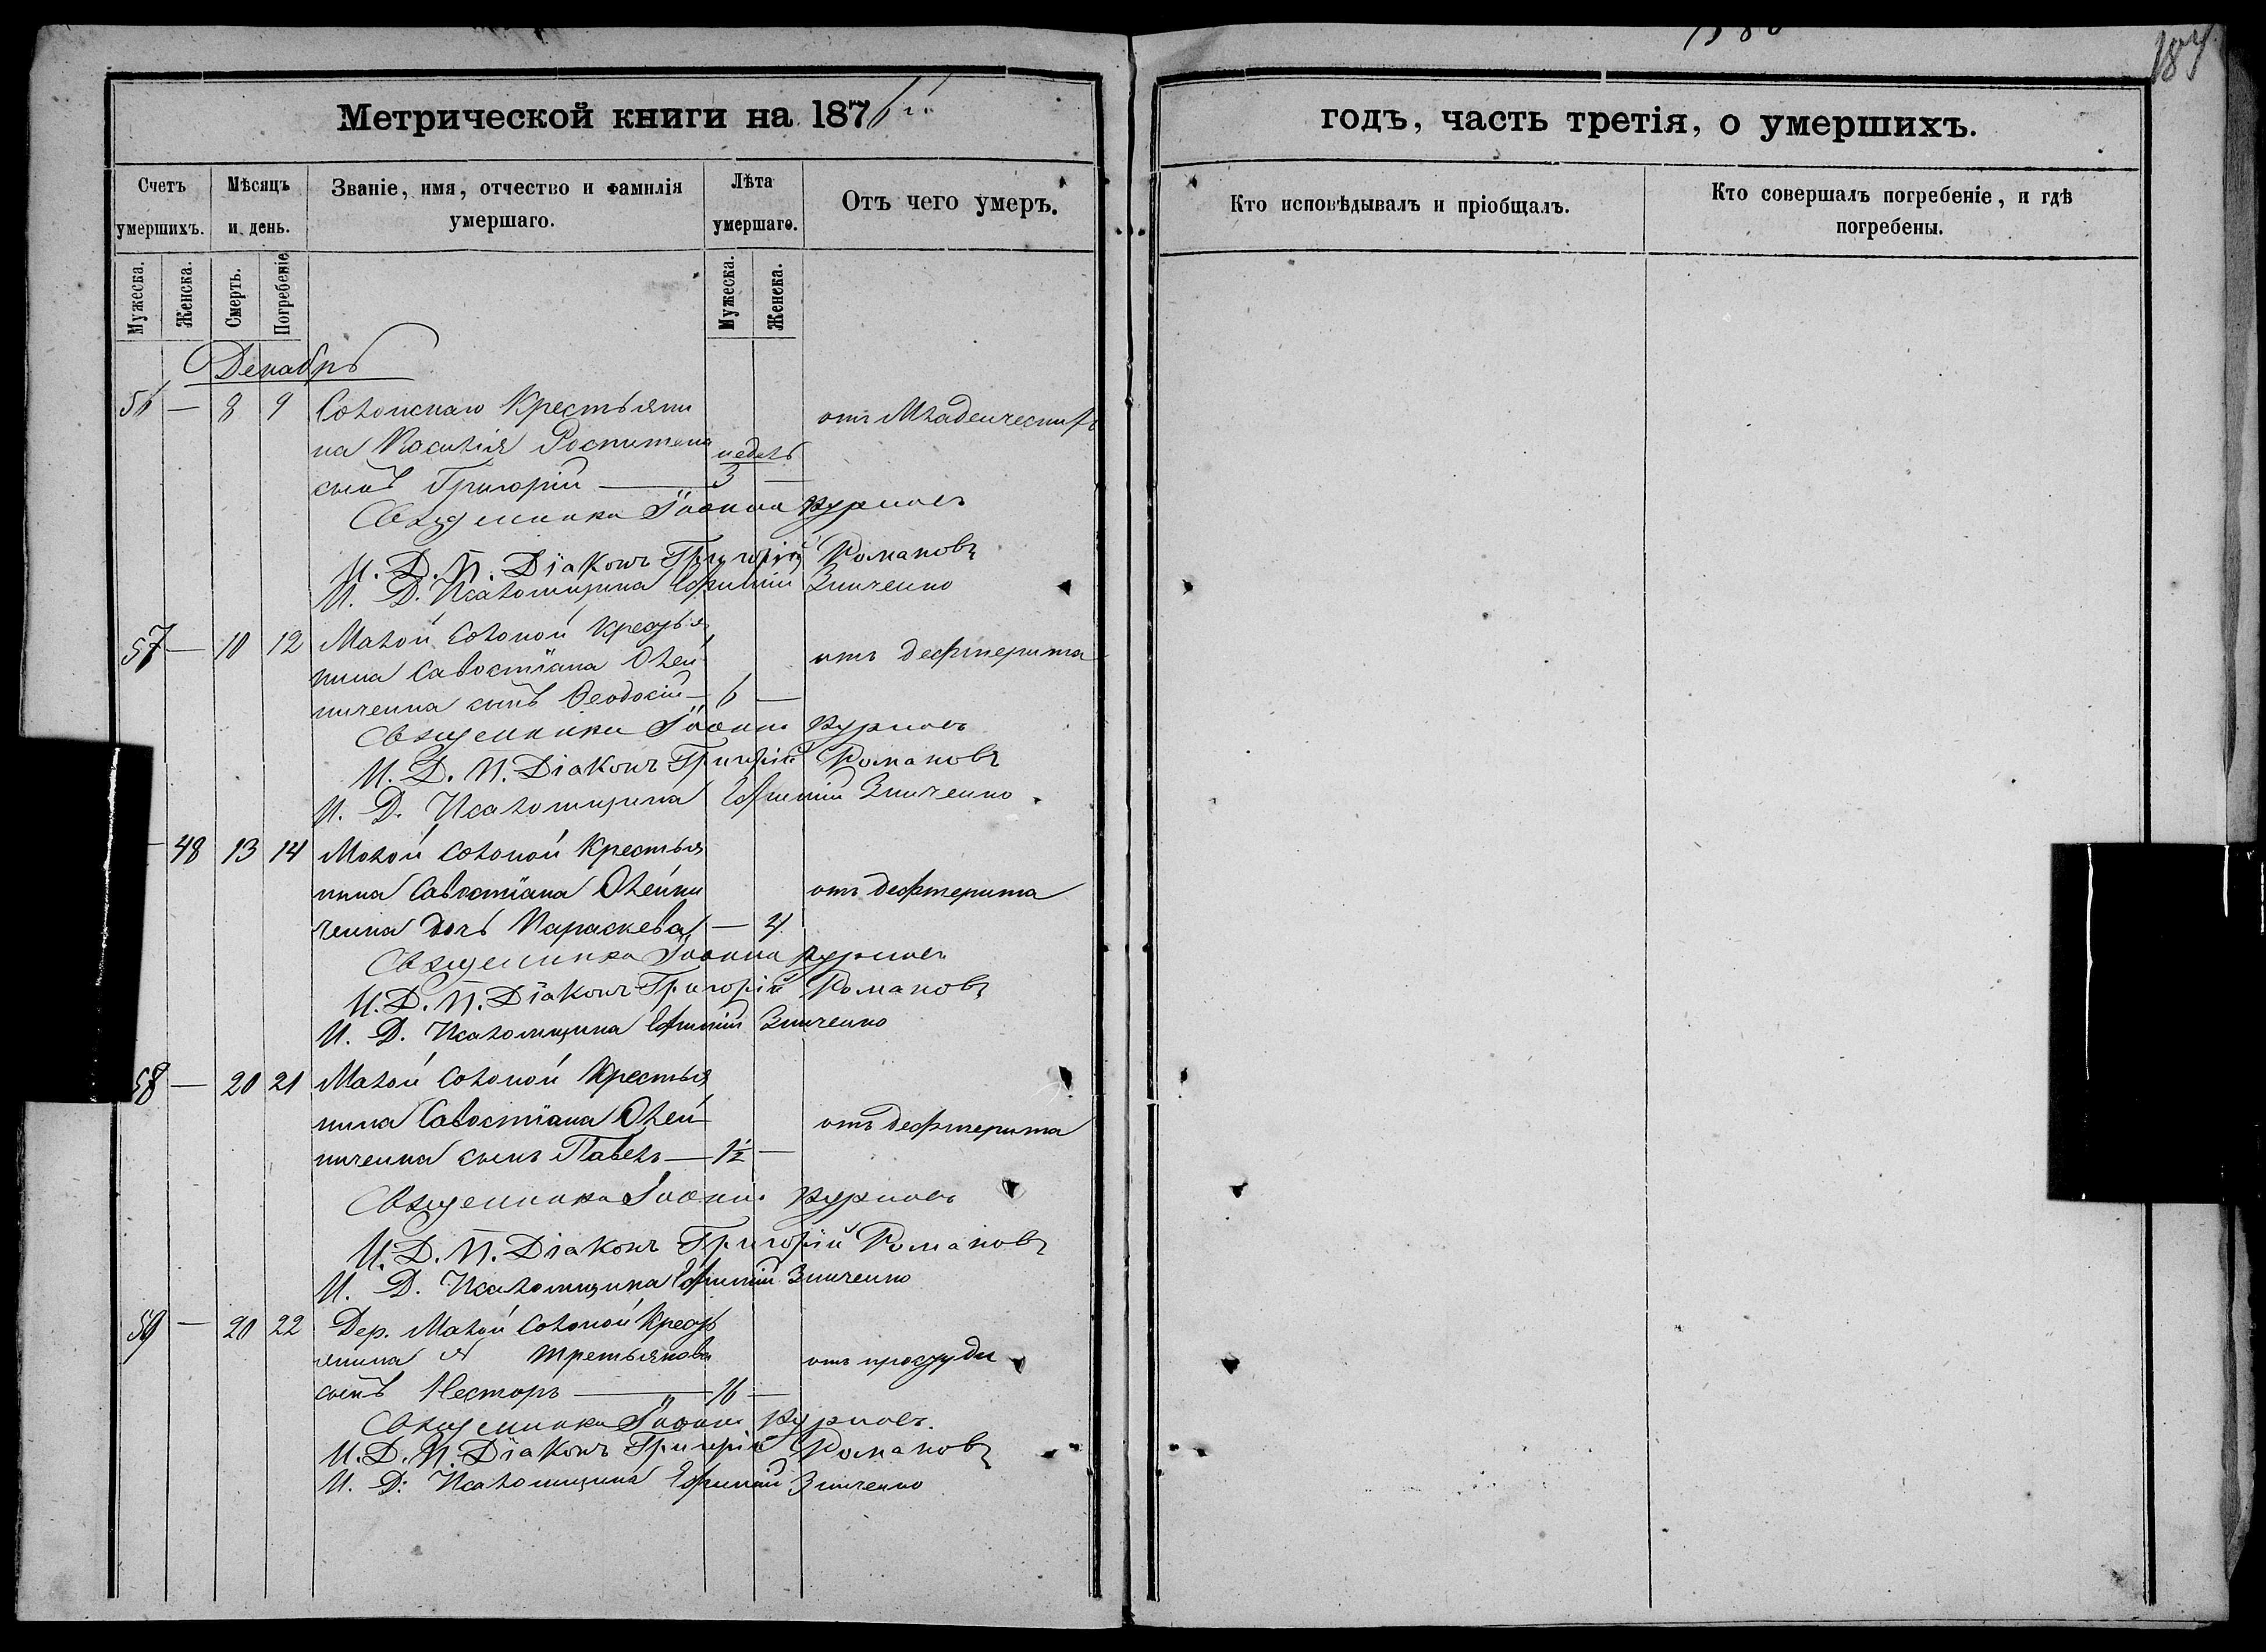 187
Метрической книги на 1876й
годъ, часть третія, о умершихъ.
Счетъ умершихъ.
Мѣсяцъ и день.
Званіе, имя, отчество и фамилія умершаго.
Лѣта умершаго.
Отъ чего умеръ.
Кто исповѣдывалъ и пріобщалъ.
Кто совершалъ погребеніе, и гдѣ погребены.
Мужеска.
Женска.
Смерть.
Погребеніе
Мужеска.
Женска.
Декабрь
56 — 8 9 Солонскаго Крестьяни
на Василія
недѣль
сынъ Григорій — 3 —
Священникъ Іоаннъ
И. Д. П. Діаконъ Григорій Романовъ
И. Д. Псаломщика Ефимій Зинченко
57 — 10 12 Малой Солоной Крестья
нина Савостіана Олей отъ дефтерита
ниченка сынъ Феодосій — 6 —
Священникъ Іоаннъ
И. Д. П. Діаконъ Григорій Романовъ
И. Д. Псаломщика Ефимій Зинченко
— 48 13 14 Малой Солоной Крестья
нина Савостіана Олейни отъ дефтерита
ченка дочь Параскева — 4
Священникъ Іоаннъ
И. Д. П. Діаконъ Григорій Романовъ
И. Д. Псаломщика Ефимій Зинченко
58 — 20 21 Малой Солоной Крестья
нина Савостіана Олей отъ дефтерита
ниченка сынъ Павелъ — 1½ —
Священникъ Іоаннъ
И. Д. П. Діаконъ Григорій Романовъ
И. Д. Псаломщика Ефимій Зинченко
59 — 20 22 Дер. Малой Солоной Кресть
янина Третьякова отъ простуды
сынъ Несторъ — 16 —
Священникъ Іоаннъ
И. Д. П. Діаконъ Григорій Романовъ
И. Д. Псаломщика Ефимій Зинченко